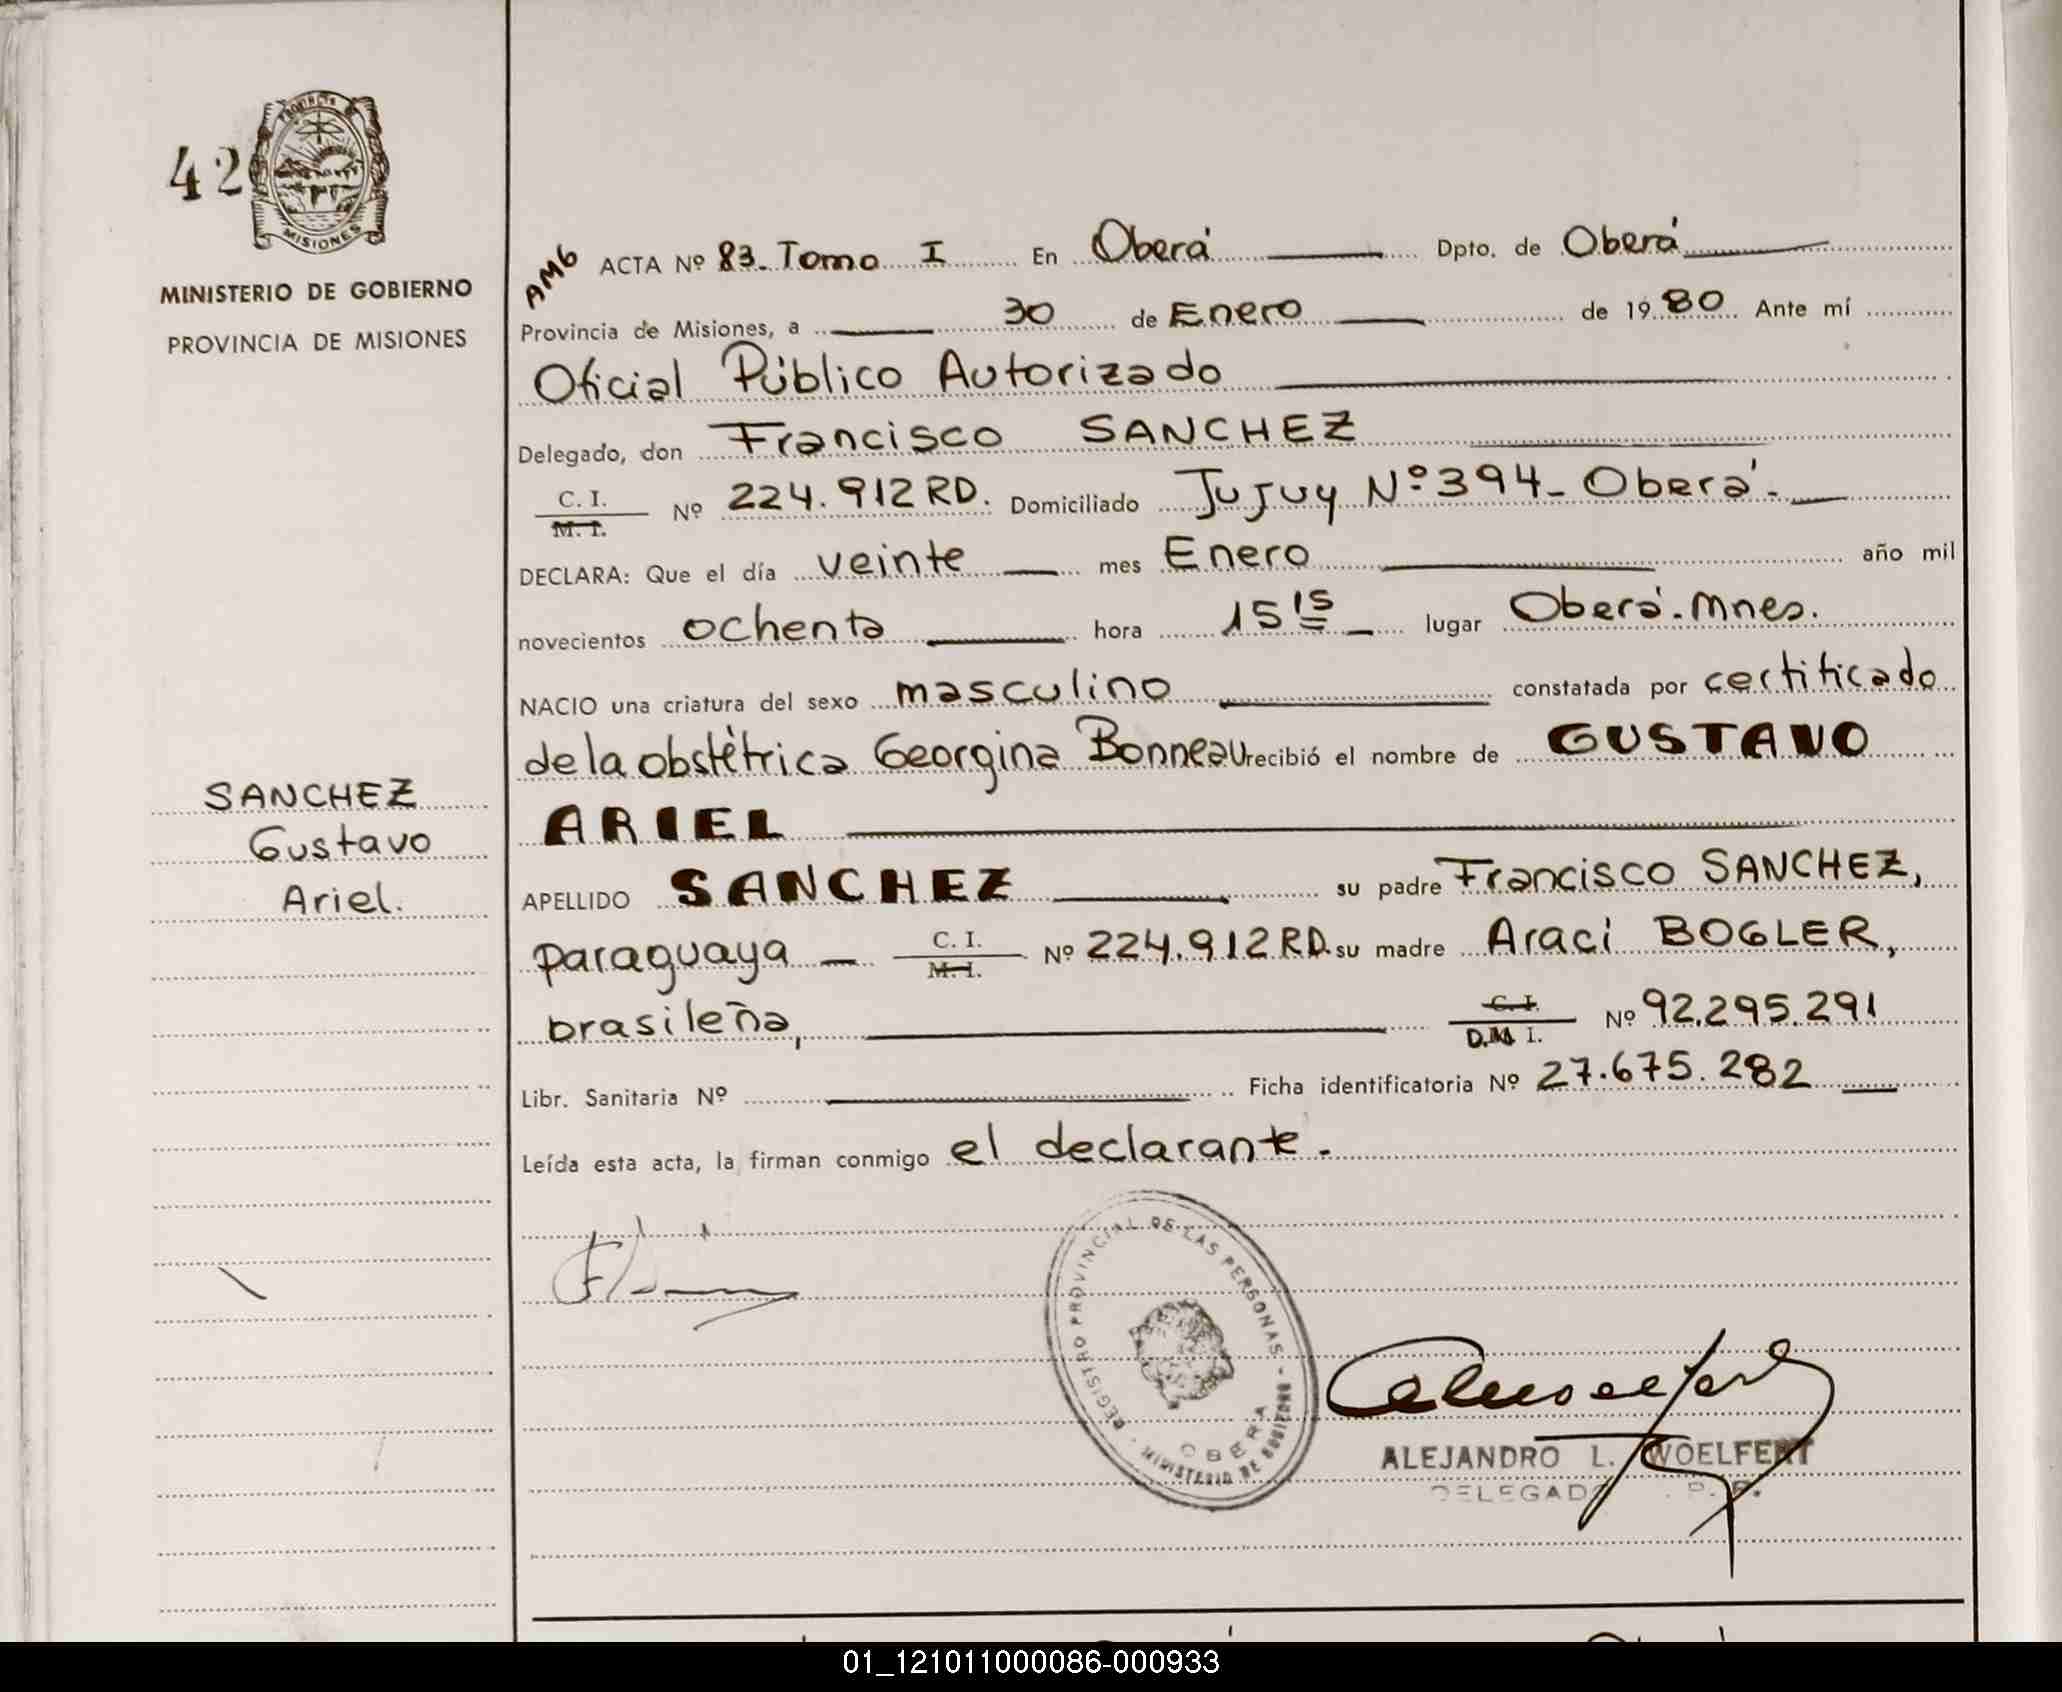 42
PROVINCIA
MISIONES
MINISTERIO DE GOBIERNO
PROVINCIA DE MISIONES
SANCHEZ
Gustavo
Ariel.
AMG
ACTA Nº 83. Tomo I En Oberá Dpto. de Oberá
Provincia de Misiones, a 30 de Enero de 1980. Ante mí
Oficial Público Autorizado
Delegado, don Francisco SANCHEZ
C. I.
M. I.
Nº 224.912 RD. Domiciliado Jujuy Nº 394 - Oberá -
DECLARA: Que el día veinte mes Enero año mil
novecientos ochenta hora 15 15 lugar Oberá. Mnes.
NACIO una criatura del sexo masculino constatada por certificado
de la obstétrica Georgina Bonneau recibió el nombre de GUSTAVO
ARIEL
APELLIDO SANCHEZ su padre Francisco SANCHEZ,
paraguaya C. I. M. I. Nº 224.912 RD. su madre Araci BOGLER,
brasileña, C. I. D.N I. Nº 92.295.291
Libr. Sanitaria Nº Ficha identificatoria Nº 27.675.282
Leída esta acta, la firman conmigo el declarante.
REGISTRO PROVINCIAL DE LAS PERSONAS - MINISTERIO DE GOBIERNO -
OBERA
ALEJANDRO L. WOELFERT
DELEGADO R. P.
01_121011000086-000933